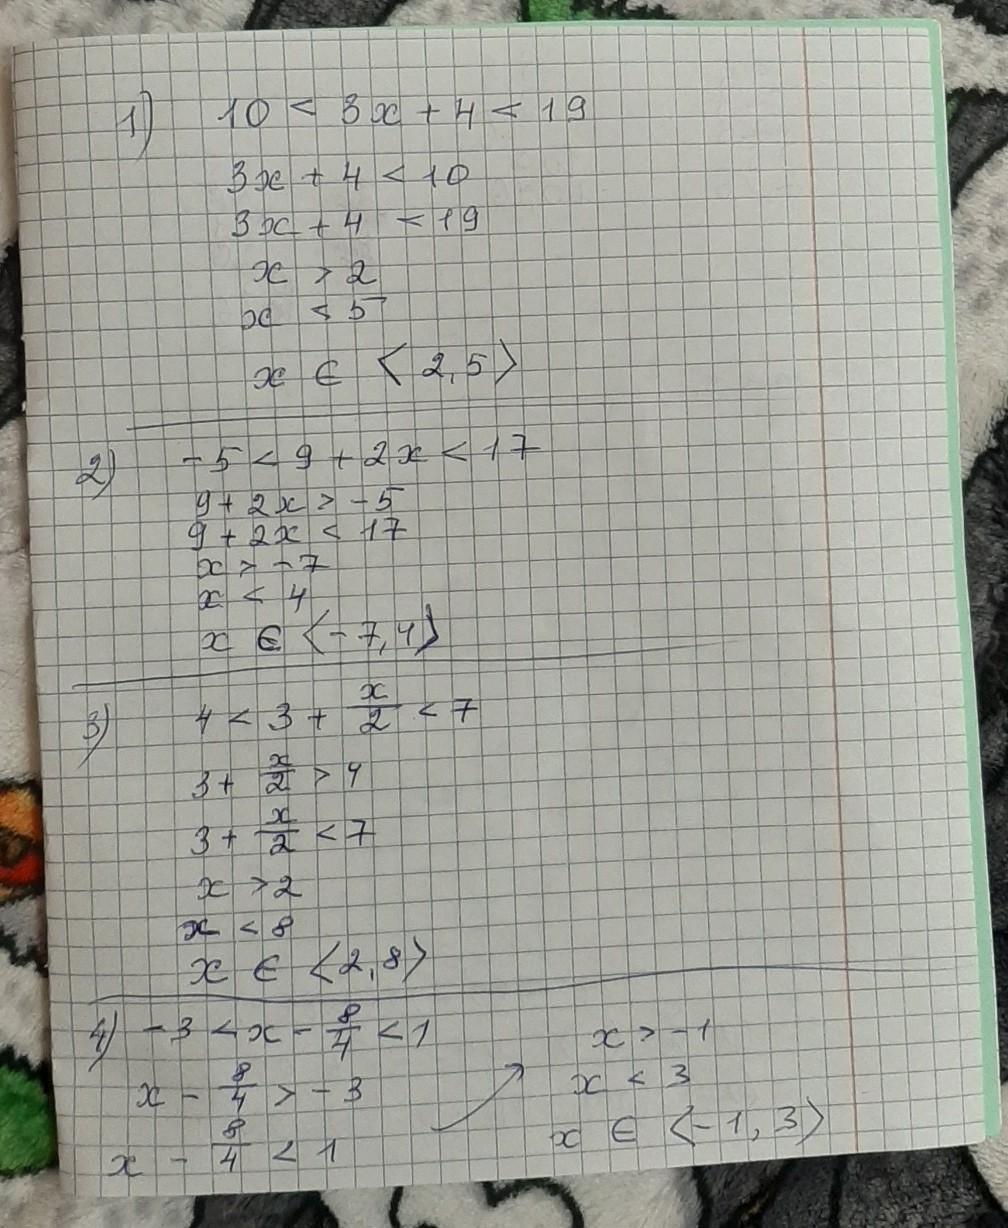 1) 10 < 3x + 4 < 19
3x + 4 < 10
3x + 4 < 19
x > 2
x < 5
x ∈ ⟨2,5⟩
2) -5 < 9 + 2x < 17
9 + 2x > -5
9 + 2x < 17
x > -7
x < 4
x ∈ ⟨-7,4⟩
3) 4 < 3 + x/2 < 7
3 + x/2 > 4
3 + x/2 < 7
x > 2
x < 8
x ∈ ⟨2,8⟩
4) -3 < x - 8/4 < 1
x - 8/4 > -3
x - 8/4 < 1
x > -1
x < 3
x ∈ ⟨-1,3⟩